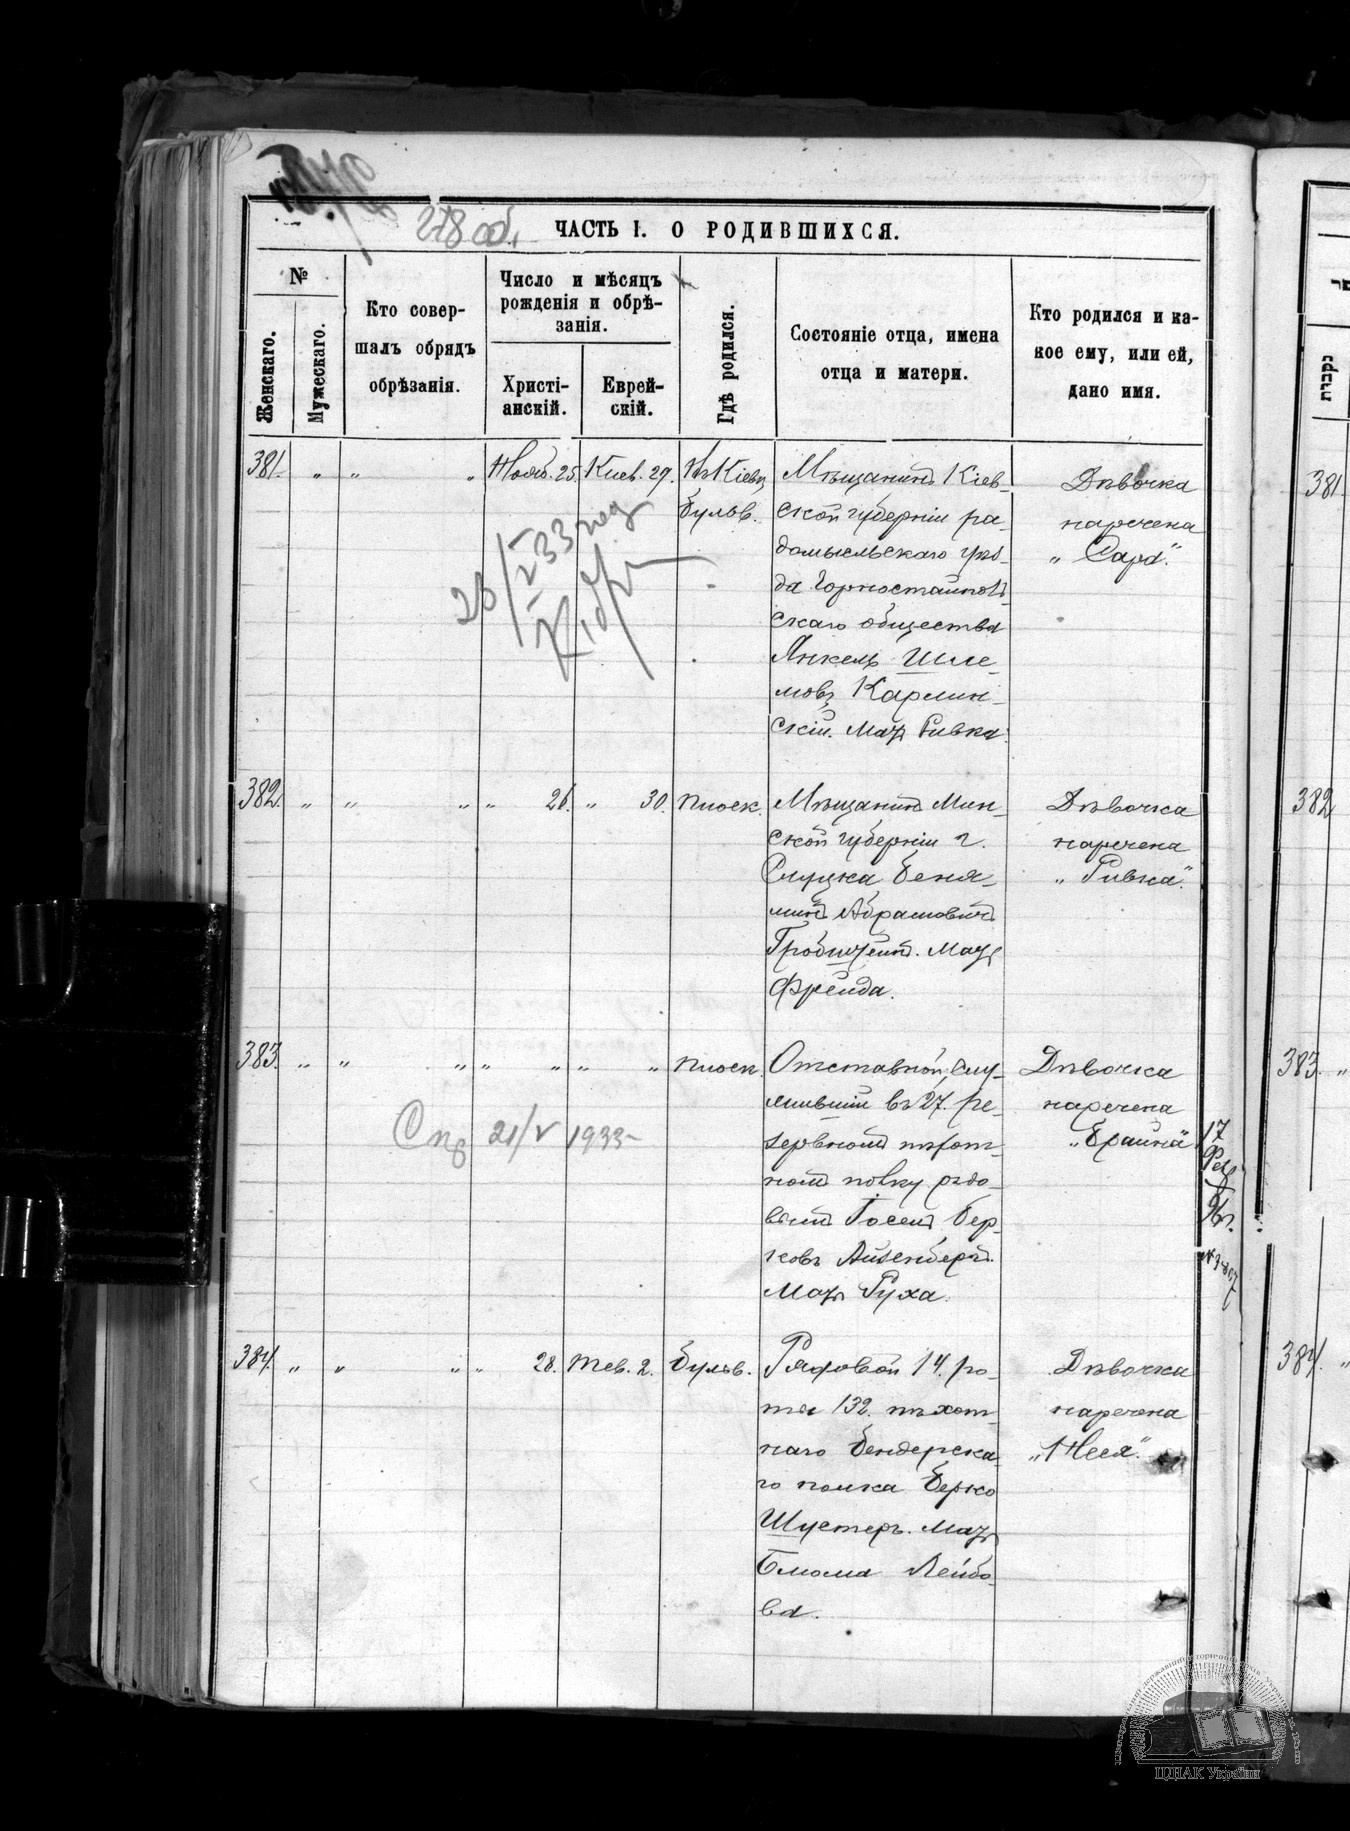 278 об.
ЧАСТЬ I. О РОДИВШИХСЯ.
№
Женскаго.
Мужескаго.
Кто совер-
шалъ обрядъ
обрѣзанія.
Число и мѣсяцъ
рожденія и обрѣ-
занія.
Христі-
анскій.
Еврей-
скій.
Гдѣ родился.
Состояніе отца, имена
отца и матери.
Кто родился и ка-
кое ему, или ей,
дано имя.
381. " " " Нояб. 25. Кисл. 29. Въ Кіевѣ
бульв.
Мѣщанинъ Кіев-
ской губерніи ра-
домысльскаго уѣз-
да Горностайпов-
скаго общества
Янкель Шле-
мовъ Карлин-
скій. Мать Ривка.
Дѣвочка
наречена
„Сара".
26/V 33 год
382. " " " " 26. " 30. плоск.
Мѣщанинъ Мин-
ской губерніи г.
Слуцка Беня-
минъ Абрамовичъ
Мать
Фрейда.
Дѣвочка
наречена
„Ривка".
383. " " " " " " " плоск.
Отставной, слу-
жившій въ 27. ре-
зервномъ пѣхот-
номъ полку рядо-
вымъ Іосель Бер-
ковъ Айзенбергъ.
Мать Руха.
Дѣвочка
наречена
21/V 1933
17
384. " " " " 28. Тев. 2. бульв.
Рядовой 14. ро-
ты 132. пѣхот-
наго Бендерска-
го полка Берко
Шустеръ. Мать
Блюма Лейбо-
ва.
Дѣвочка
наречена
„Неся".
נקבות
381.
382
383. "
384. "
ЦДІАК України